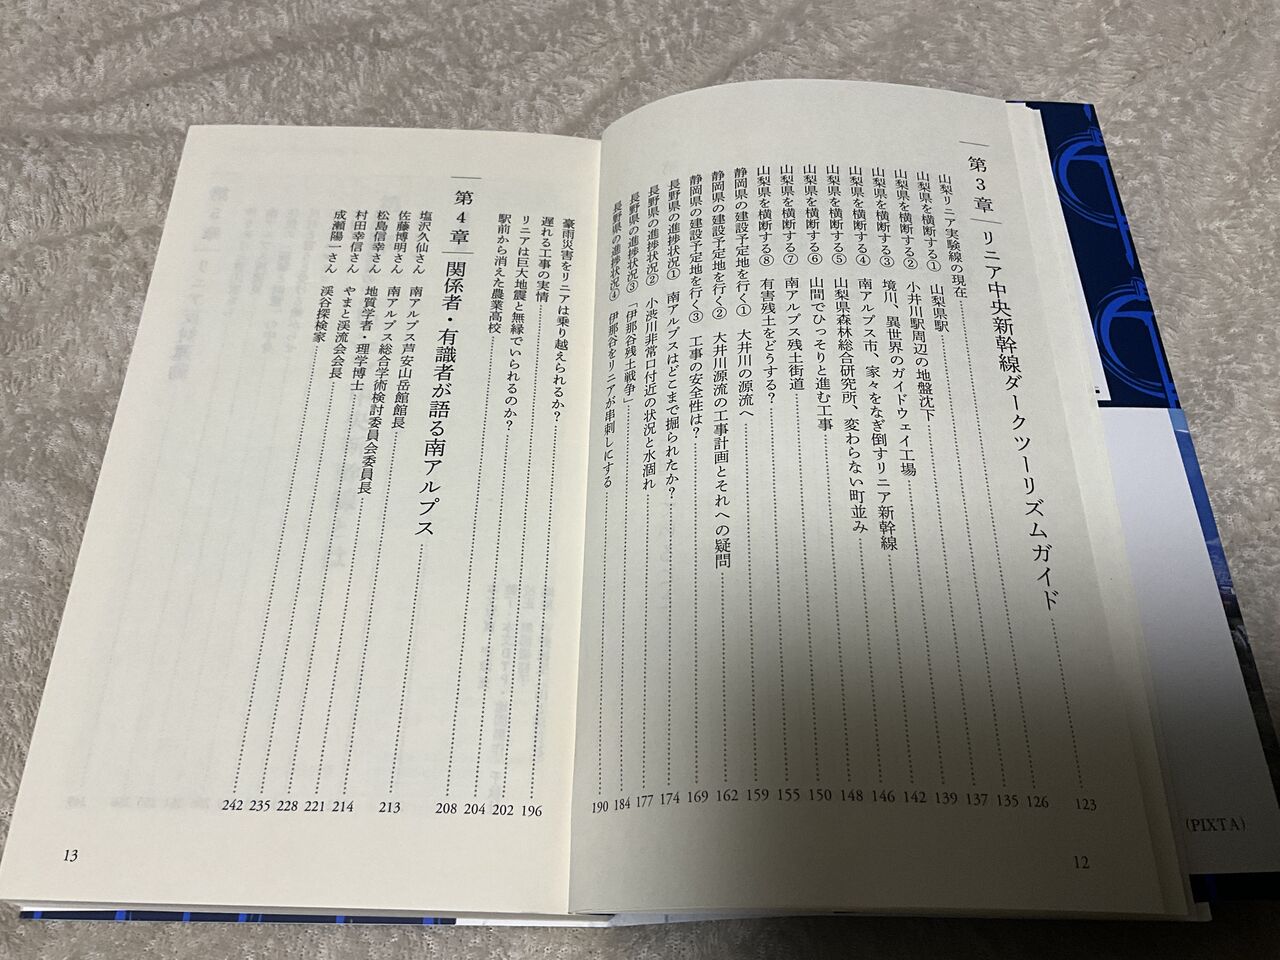 第3章 リニア中央新幹線ダークツーリズムガイド 123
山梨リニア実験線の現在 126
山梨県を横断する① 山梨県駅 135
山梨県を横断する② 小井川駅周辺の地盤沈下 137
山梨県を横断する③ 境川、異世界のガイドウェイ工場 139
山梨県を横断する④ 南アルプス市、家々をなぎ倒すリニア新幹線 142
山梨県を横断する⑤ 山梨県森林総合研究所、変わらない町並み 146
山梨県を横断する⑥ 山間でひっそりと進む工事 148
山梨県を横断する⑦ 南アルプス残土街道 150
山梨県を横断する⑧ 有害残土をどうする? 155
静岡県の建設予定地を行く① 大井川の源流へ 159
静岡県の建設予定地を行く② 大井川源流の工事計画とそれへの疑問 162
静岡県の建設予定地を行く③ 工事の安全性は? 169
長野県の進捗状況① 南アルプスはどこまで掘られたか? 174
長野県の進捗状況② 小渋川非常口付近の状況と水涸れ 177
長野県の進捗状況③ 「伊那谷残土戦争」 184
長野県の進捗状況④ 伊那谷をリニアが串刺しにする 190
12
(PIXTA)
豪雨災害をリニアは乗り越えられるか? 196
遅れる工事の実情 202
リニアは巨大地震と無縁でいられるのか? 204
駅前から消えた農業高校 208
第4章 関係者・有識者が語る南アルプス 213
塩沢久仙さん 南アルプス芦安山岳館館長 214
佐藤博明さん 南アルプス総合学術検討委員会委員長 221
松島信幸さん 地質学者・理学博士 228
村田幸信さん やまと渓流会会長 235
成瀬陽一さん 渓谷探検家 242
13